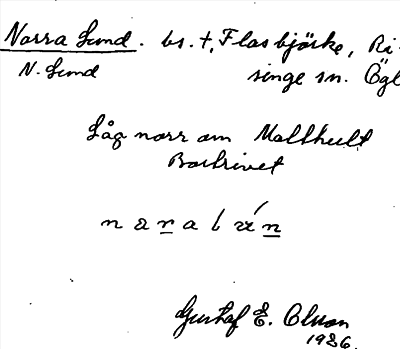 Norra Lund. bs. †, Flasbjörke, Ri-
N. Lund singe sn. Ögl
Låg norr om Malthult
Bortrivet
Gustaf E. Olsson
1926.